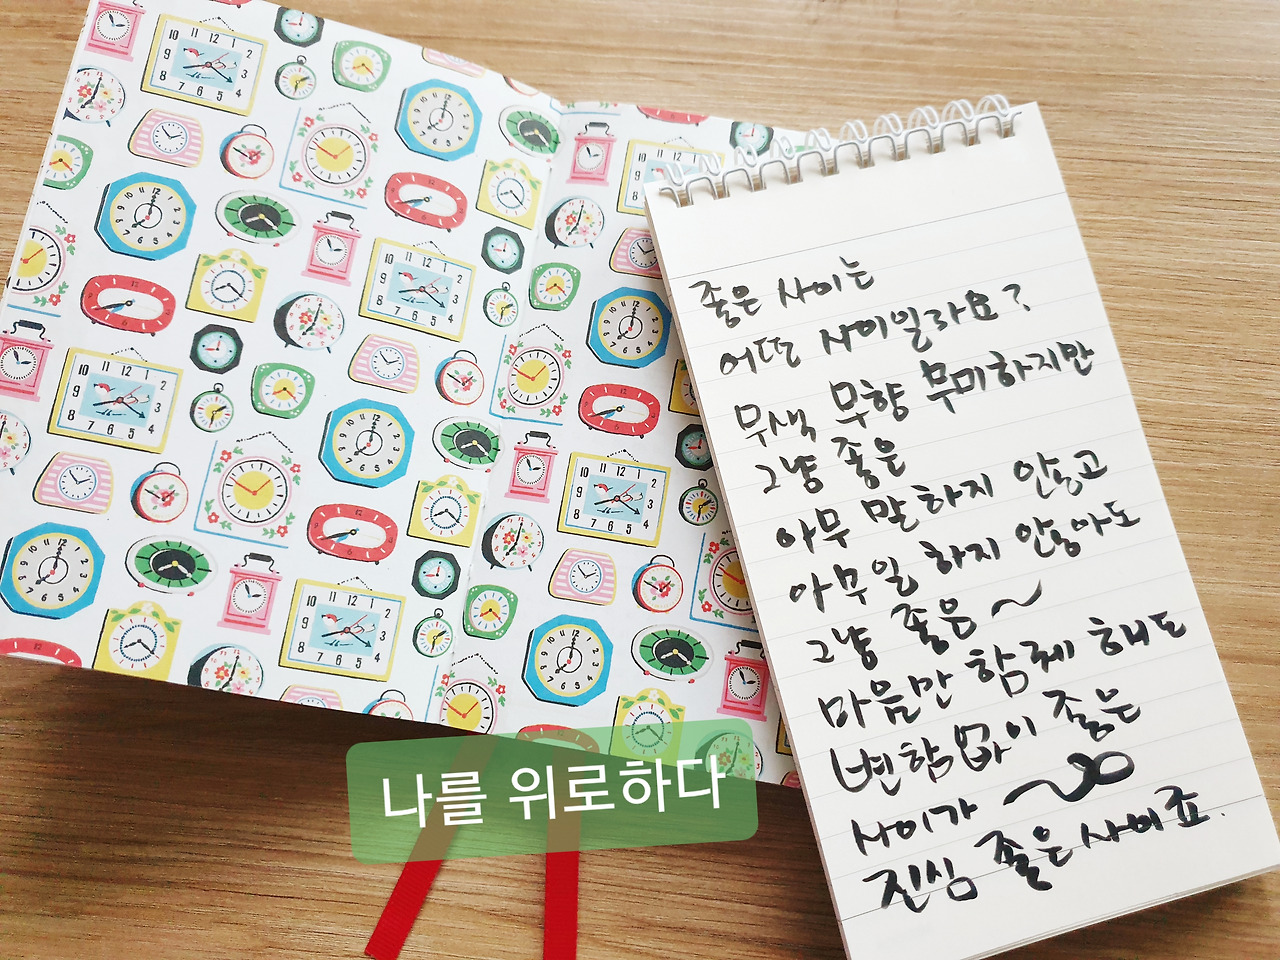 좋은 사이는
어떤 사이일라요?
무색 무향 무미하지만
그냥 좋은
아무 말 하지 않고
아무일 하지 않아도
그냥 좋은~
마음만 함께 해도
변함없이 좋은
사이가~
진심 좋은 사이죠.
나를 위로하다